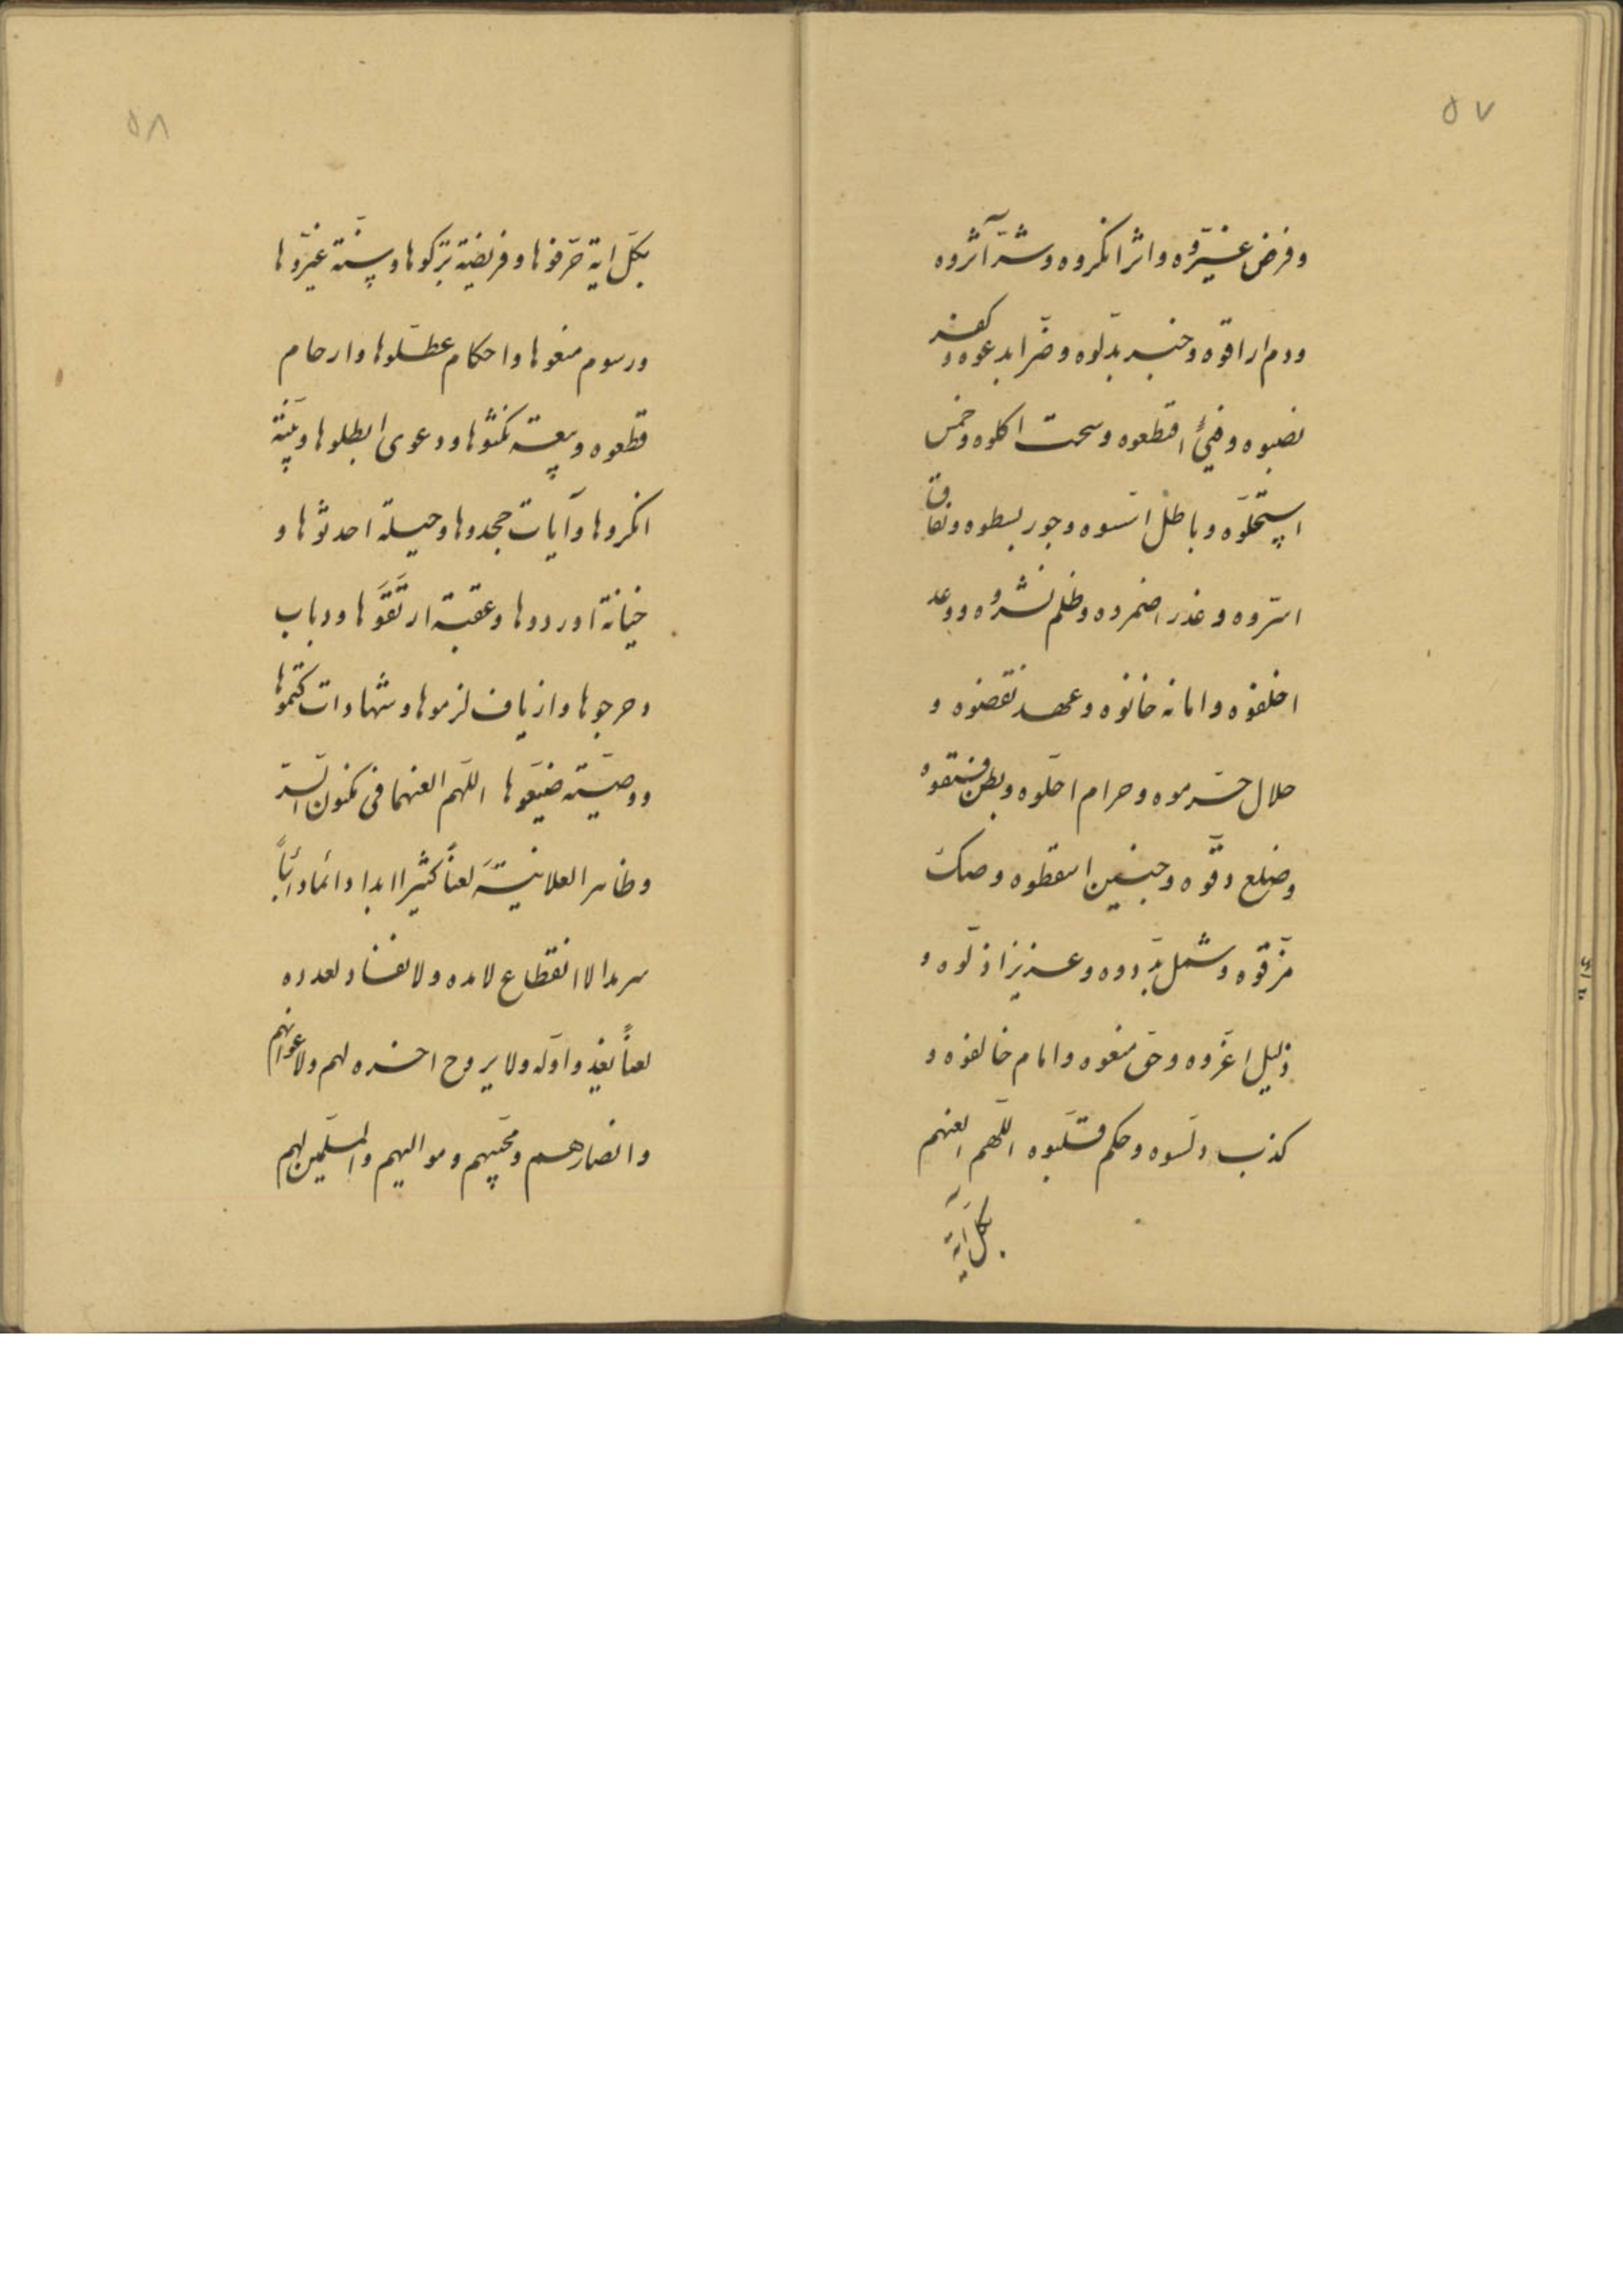 ٥٧
وفرض غيّروه واثر انكروه وشرّ آثروه
ودم اراقوه وخبر بدّلوه وضرّ ابدعوه وكفر
نصبوه وفيئ اقتطعوه وسحت اكلوه وخمس
استحلّوه وباطل اسّسوه وجور بسطوه ونفاق
اسرّوه وغدر اضمروه وظلم نشروه ووعد
اخلفوه وامانه خانوه وعهد نقضوه و
حلال حرموه وحرام احلّوه وبطن فتقوه
وضلع دقّوه وجنين اسقطوه وصك
مزّقوه وشمل بدّدوه وعزيز اذلّوه و
ذليل اعزّوه وحق منعوه وامام خالفوه و
كذب دلّسوه وحكم قلّبوه اللّهم العنهم
بكلّ آية
٥٨
بكلّ اية حرّفوها وفريضة تركوها وسنّة غيّروها
ورسوم منعوها واحكام عطّلوها وارحام
قطعوه وبيعة نكثوها ودعوى ابطلوها وبيّنة
انكروها وآيات جحدوها وحيلة احدثوها و
خيانة اوردوها وعقبة ارتقوها ودباب
دحرجوها وازياف لزموها وشهادات كتموها
ووصيّة ضيّعوها اللّهم العنهما فى مكنون السّرّ
وظاهر العلانيّة لعناً كثيرا ابدا دائما دائباً
سرمدا لا انقطاع لامده ولا نفاد لعدده
لعناً يغدو اوّله ولا يروح اخره لهم ولاعوانهم
وانصارهم ومحبّيهم ومواليهم والمسلّمين لهم